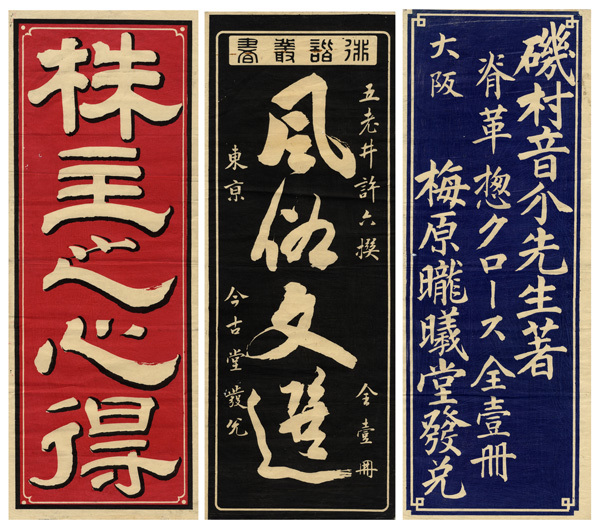 株主之心得
俳諧叢書
五老井許六撰 全壹冊
風俗文選
東亰 今古堂發兌
磯村音介先生著
脊革惣クロース全壹冊
大阪 梅原曨曦堂發兌